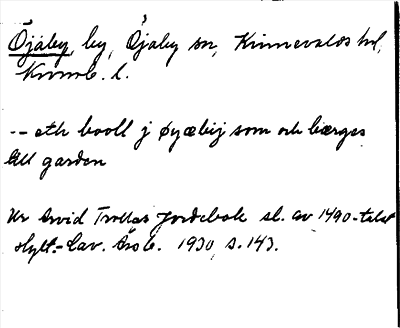 Öjaby, by, Öjaby sn, Kinnevalds hd,
Kronob. l.
-- eth booll j øyæbij som och bærgas
till garden
Ur Arvid Trolles jordebok sl. av 1490-talet
Hylt.-Cav. Årsb. 1930 s. 143.